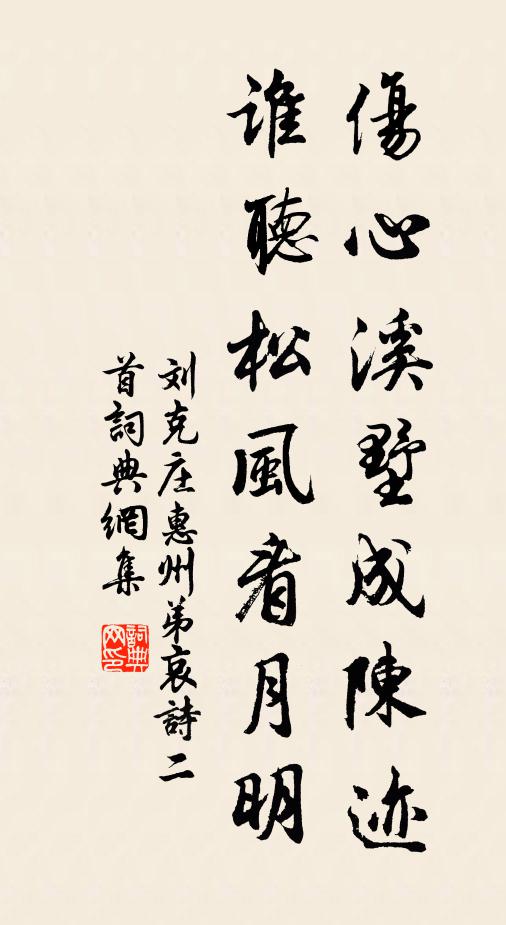 傷心溪墅成陳迹
谁聽松風看月明
刘克庄惠州弟哀詩二
首詞典網集
詞典
网印